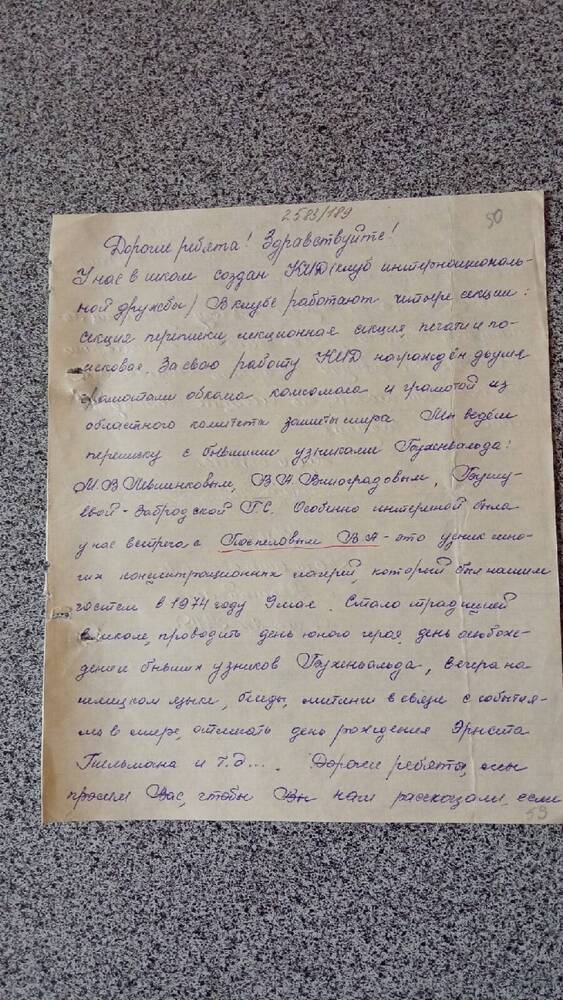 2583/189
50
Дорогие ребята! Здравствуйте!
У нас в школе создан КИД (клуб интернациональ-
ной дружбы) В клубе работают четыре секции:
секция переписки, лекционная секция, печати и по-
исковая. За свою работу КИД награждён двумя
грамотами обкома комсомола и грамотой из
областного комитета защиты мира. Мы ведём
переписку с бывшими узниками Бухенвальда:
М.В. В.Н Виноградовым,
Г.С. Особенно интересной была
у нас встреча с Поспеловым В.А - это узник мно-
гих концентрационных лагерей, который был нашим
гостем в 1974 году 9 мая. Стало традицией
в школе, проводить день юного героя, день освобож-
дения бывших узников Бухенвальда, вечера на
немецком языке, беседы, митинги в связи с события-
ми в мире, отмечать день рождения Эрнста
Тельмана и т.д.... Дорогие ребята, мы
просим Вас, чтобы Вы нам рассказали, если
59